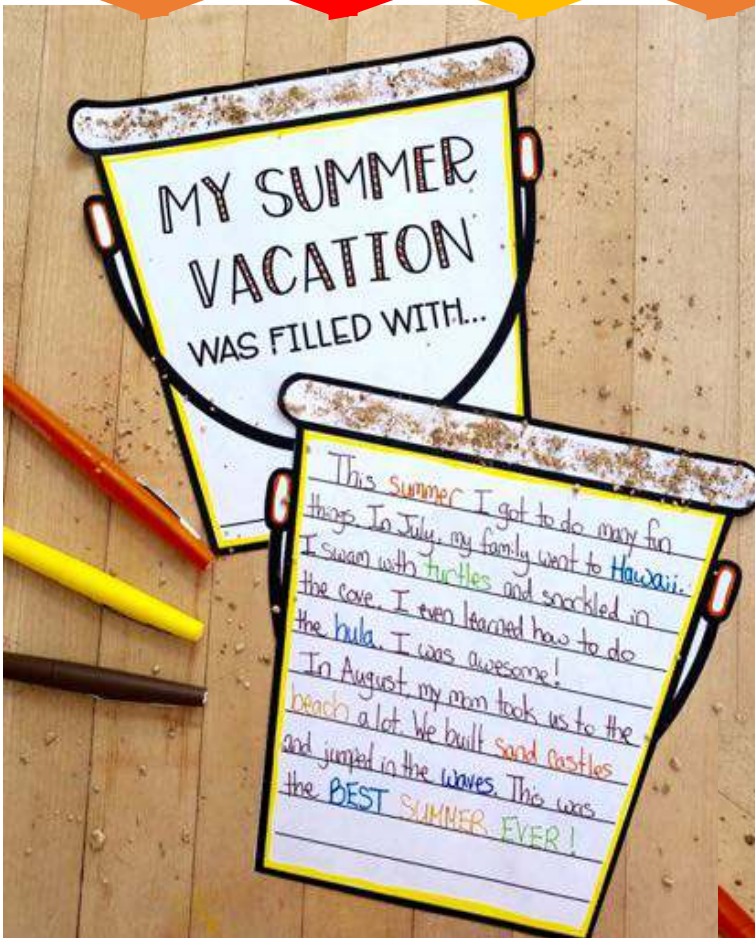 MY SUMMER
VACATION
WAS FILLED WITH...
This summer I got to do many fun
things. In July, my family went to Hawaii.
I swam with turtles and snorkled in
the cove. I even learned how to do
the hula. I was awesome!
In August, my mom took us to the
beach a lot. We built sand castles
and jumped in the waves. This was
the BEST SUMMER EVER!